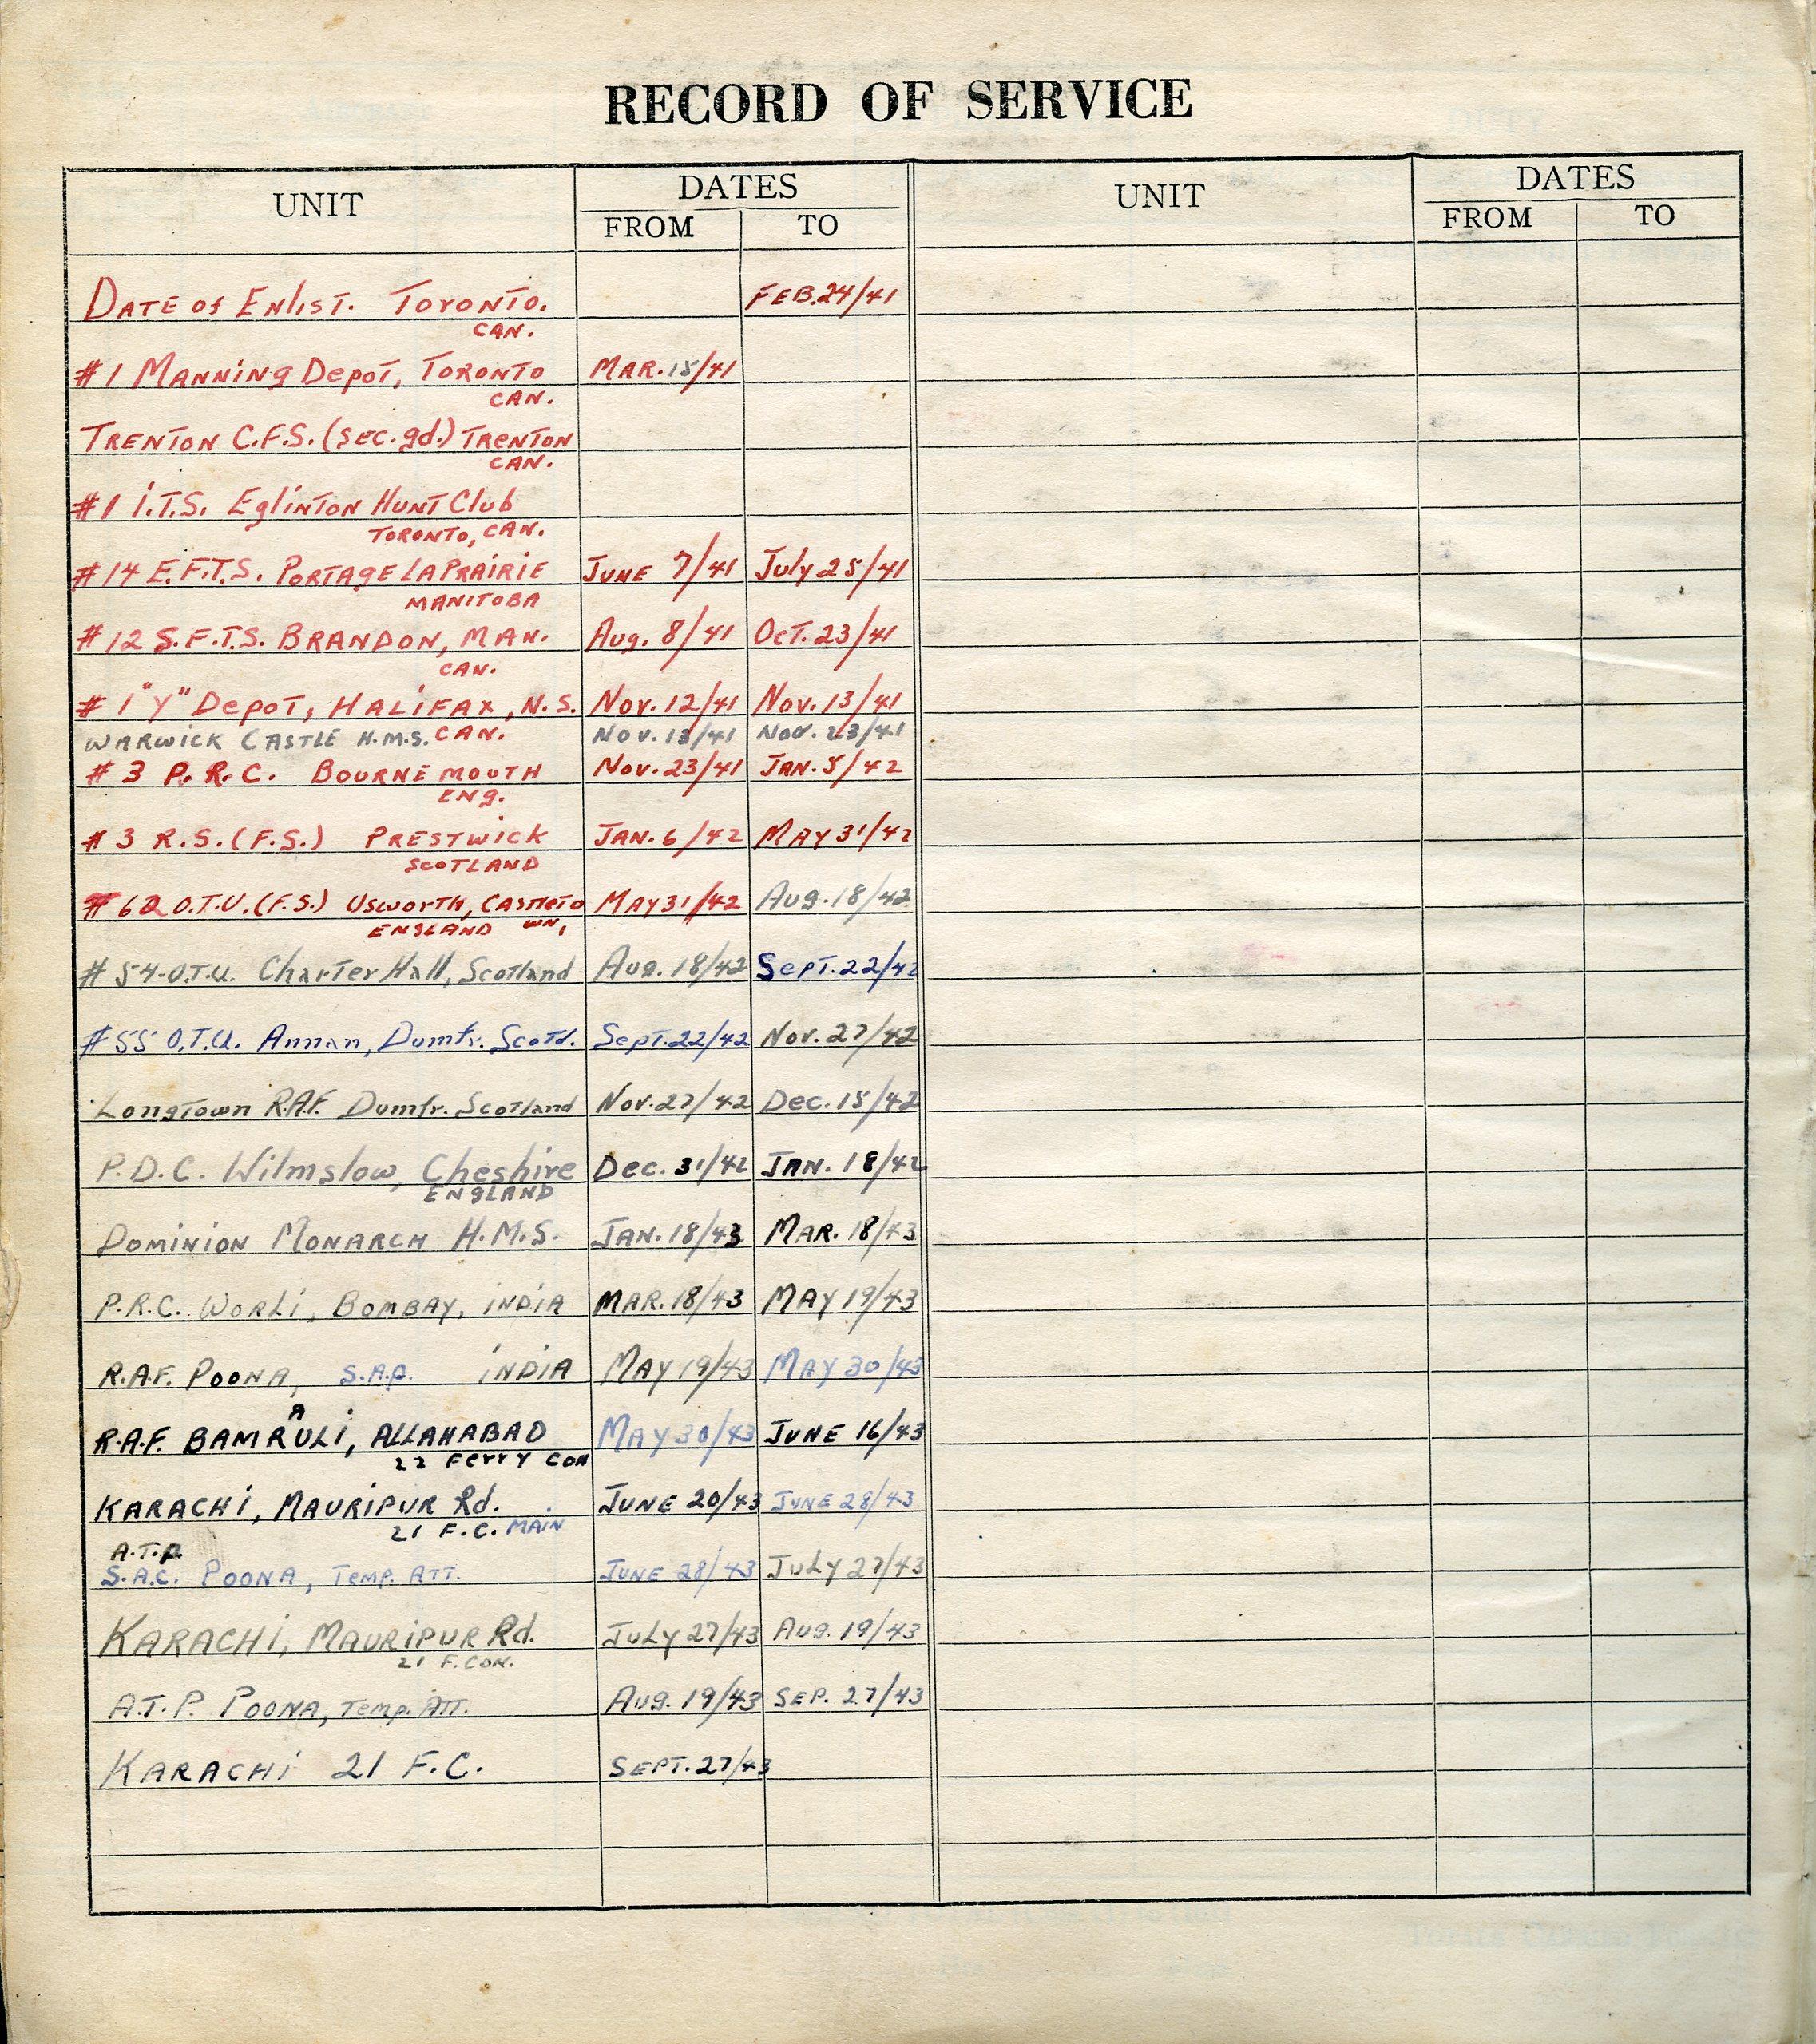 RECORD OF SERVICE
UNIT DATES UNIT DATES
FROM TO FROM TO
DATE of ENLIST. TORONTO. FEB.24/41
CAN.
#1 MANNING DEPOT, TORONTO MAR.15/41
CAN.
TRENTON C.F.S. (SEC. gd.) TRENTON
CAN.
#1 I.T.S. EglINTON HUNT Club
TORONTO, CAN.
#14 E.F.T.S. PORTAGE LAPRAIRIE JUNE 7/41 July 25/41
MANITOBA
#12 S.F.T.S. BRANDON, MAN. Aug. 8/41 OCT. 23/41
CAN.
#1 "Y" DEPOT, HALIFAX, N.S. Nov. 12/41 Nov. 13/41
WARWICK CASTLE H.M.S. CAN. NOV. 13/41 Nov. 23/41
#3 P.R.C. BOURNEMOUTH Nov. 23/41 JAN. 5/42
ENG.
#3 R.S. (F.S.) PRESTWICK JAN. 6/42 MAY 31/42
SCOTLAND
#62 O.T.U. (F.S.) USWORTH, CASTLETO MAY 31/42 Aug. 18/42
ENGLAND WN,
#54-O.T.U. Charter Hall, Scotland Aug. 18/42 SEPT. 22/42
#55 O.T.U. Annan, Dumfr. Scotd. Sept. 22/42 Nov. 27/42
LongTown R.A.F. Dumfr. Scotland Nov. 27/42 Dec. 15/42
P.D.C. Wilmslow, Cheshire Dec. 31/42 JAN. 18/42
ENGLAND
DOMINION MONARCH H.M.S. JAN. 18/43 MAR. 18/43
P.R.C. WORLI, BOMBAY, INDIA MAR. 18/43 MAY 19/43
R.A.F. POONA, S.A.P. INDIA MAY 19/43 MAY 30/43
A
R.A.F. BAMRULI, ALLAHABAD MAY 30/43 JUNE 16/43
22 Ferry CON
KARACHI, MAURIPUR Rd. JUNE 20/43 JUNE 28/43
21 F.C. MAIN
A.T.P.
S.A.C. POONA, Temp. ATT. JUNE 28/43 JULY 27/43
KARACHI, MAURIPUR Rd. JULY 27/43 AUG. 19/43
21 F. CON.
A.T.P. POONA, Temp. ATT. AUG. 19/43 SEP. 27/43
KARACHI 21 F.C. SEPT. 27/43